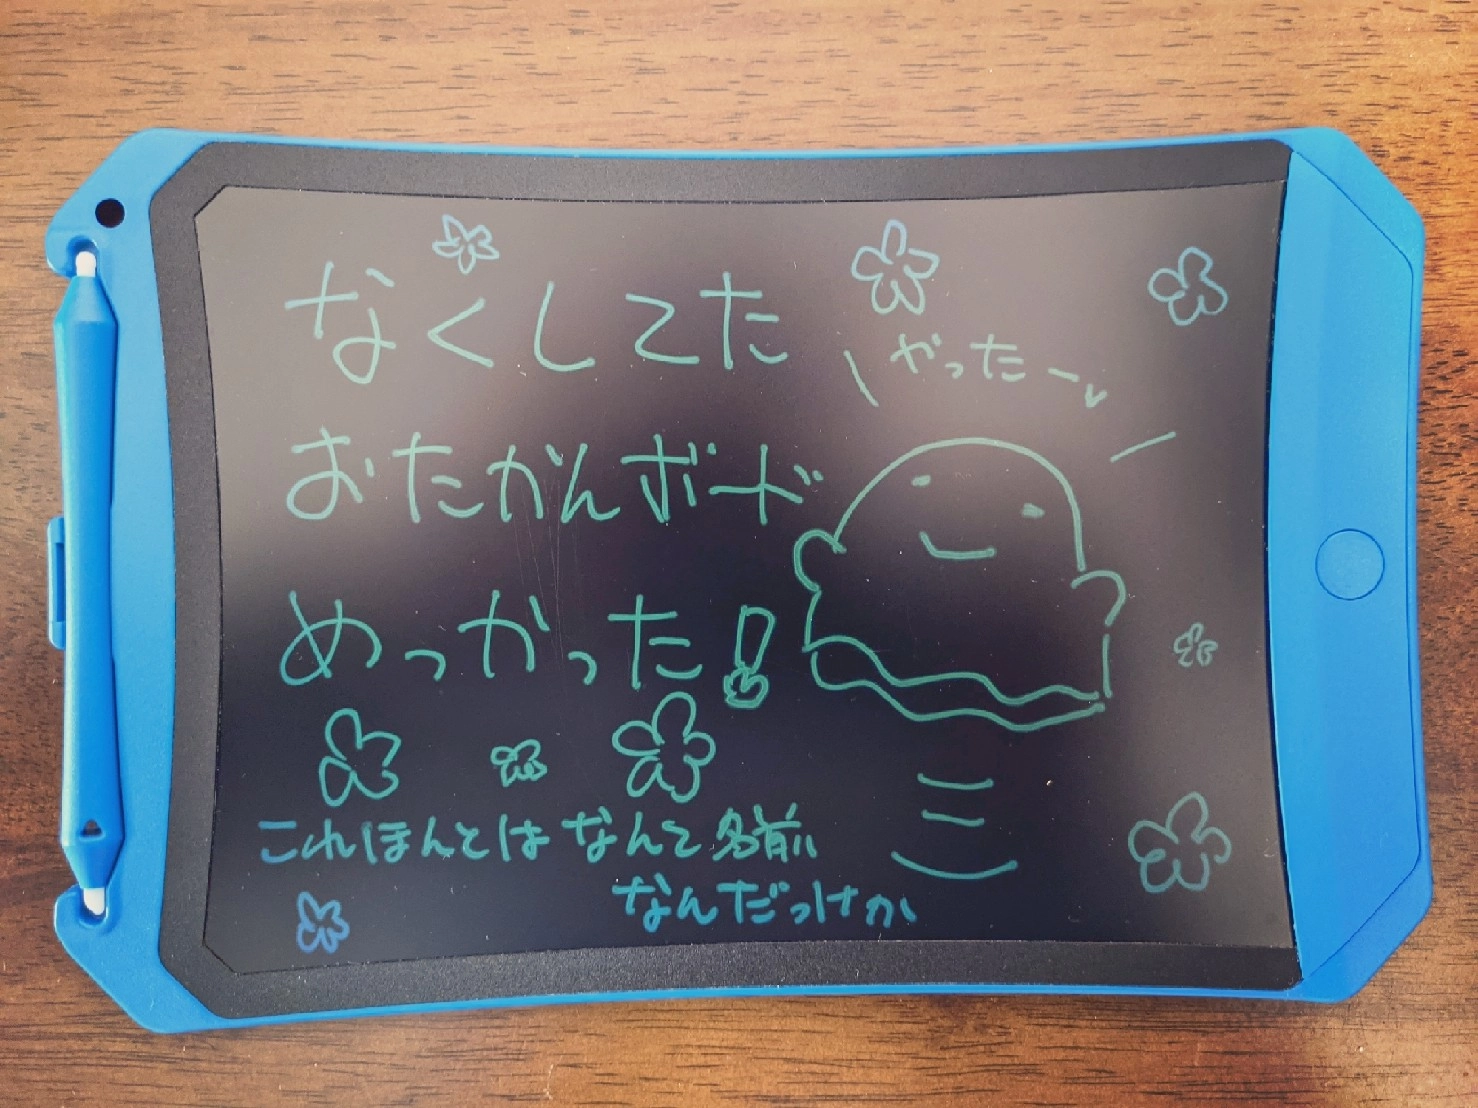 なくしてた
やったー
おたかんボード
めっかった!
これほんとはなんて名前
なんだっけか